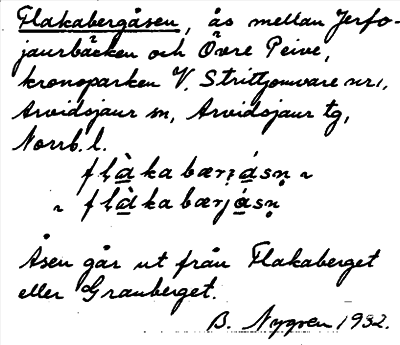 Flakabergåsen, ås mellan Jerfo-
jaurbäcken och Övre Peive,
kronoparken V. Strittjomvare nr 1,
Arvidsjaur sn, Arvidsjaur tg,
Norrb. l.
fḷàka bærjásṇ ~
~ fḷàka bærjásṇ
Åsen går ut från Flakaberget
eller Granberget.
B. Nygren 1932.